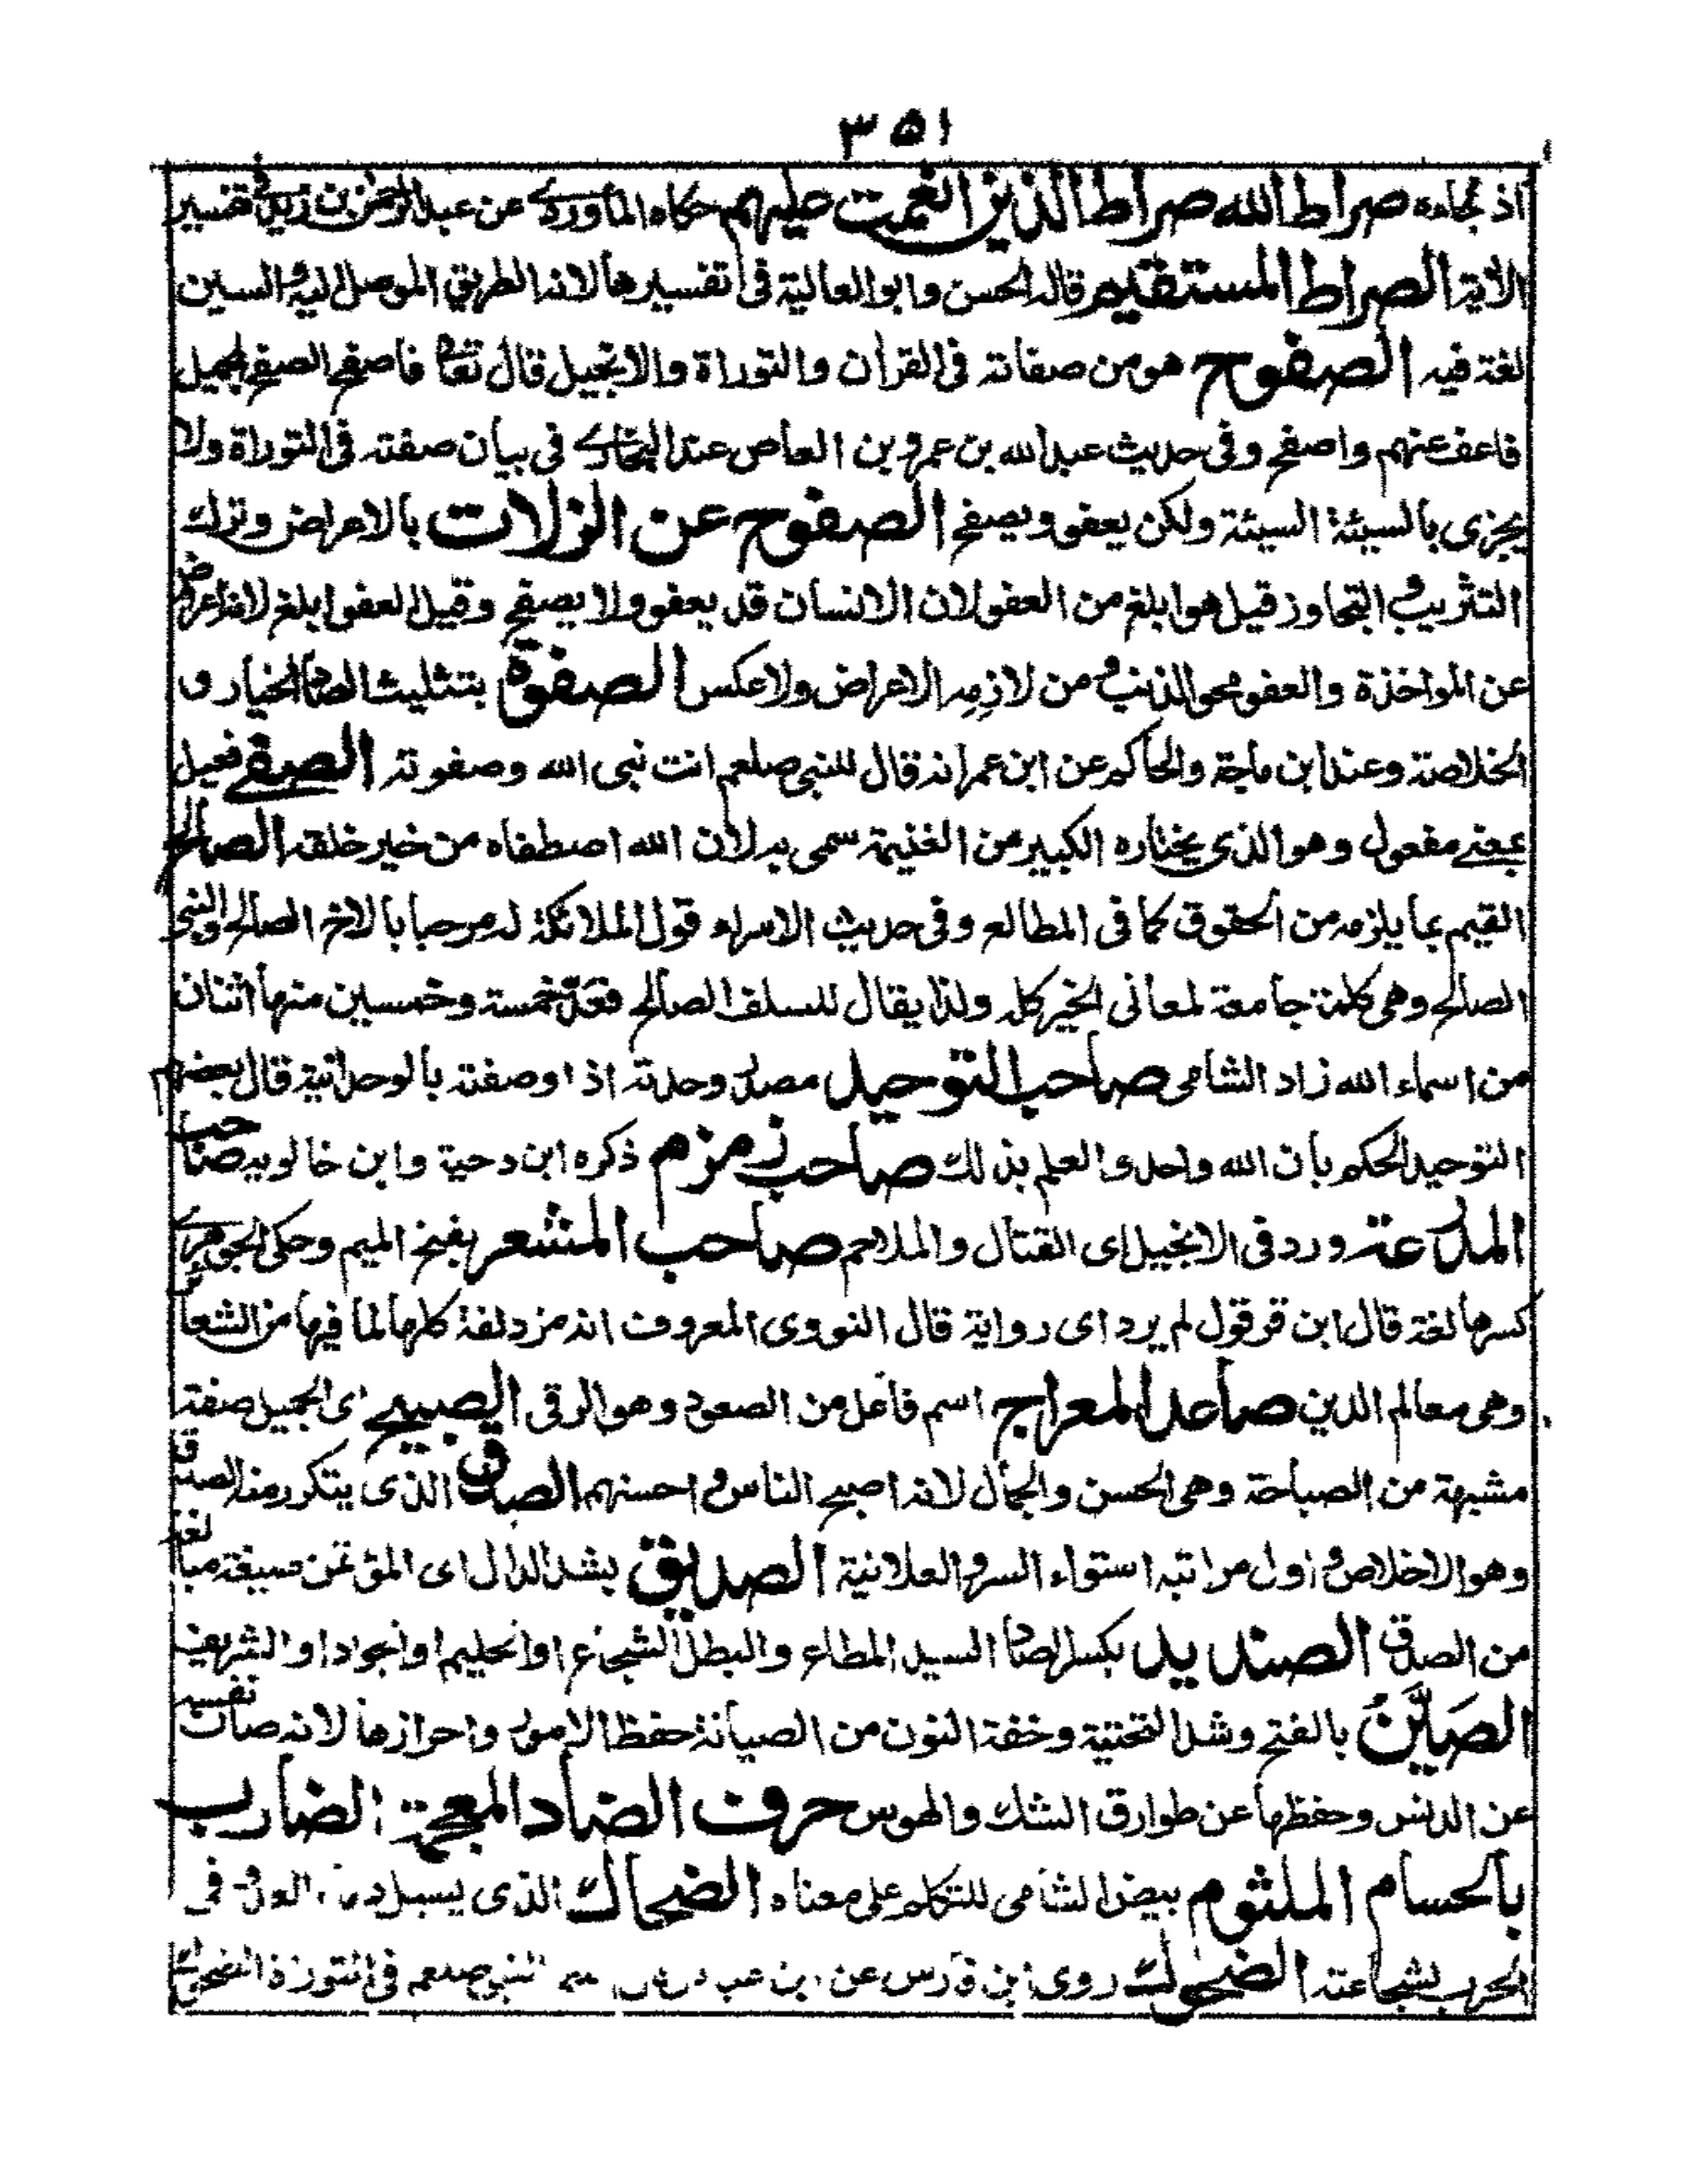 ٣٥١
اذ نجاءه صراط الله صراط الذين انعمت عليهم حكاه الماوردي عن عبد الرحمن بن زيد في تفسير
الاية الصراط المستقيم قاله الحسن وابو العالية في تفسيرها لانه الطريق الموصل اليه والسين
لغة فيه الصفوح هو من صفاته في القران والتوراة والانجيل قال تعا فاصفح الصفح الجميل
فاعف عنهم واصفح وفي حديث عبد الله بن عمرو بن العاص عند البخاري في بيان صفته في التوراة ولا
يجزى بالسيئة السيئة ولكن يعفو ويصفح الصفوح عن الزلات بالاعراض وترك
التثريب والتجاوز قيل هو ابلغ من العفو لان الانسان قد يعفو ولا يصفح وقيل العفو ابلغ لانه اعراض
عن المواخذة والعفو محو الذنب ومن لازمه الاعراض ولا عكس الصفوة بتثليث الصاد الخيار و
الخلاصة وعند ابن ماجة والحاكم عن ابن عمر انه قال للنبي صلعم انت نبى الله وصفوته الصفي فعيل
بمعنى مفعول وهو الذي يختاره الكبير من الغنيمة سمى به لان الله اصطفاه من خير خلقه الصالح
القيم بما يلزمه من الحقوق كما في المطالع وفي حديث الاسراء قول الملائكة له مرحبا بالاخ الصالح والنبي
الصالح وهى كلمة جامعة لمعانى الخير كله ولذا يقال للسلف الصالح فعد خمسة وخمسين منها اثنان
من اسماء الله زاد الشامى صاحب التوحيد مصدر وحدته اذا وصفته بالوحدانية قال بعضهم
التوحيد الحكم بان الله واحد والعلم بذلك صاحب زمزم ذكره ابن دحية وابن خالويه صاحب
المدرعة ورد في الانجيل اى القتال والملاحم صاحب المشعر بفتح الميم وحكى الجوهري
كسرها لغة قال ابن قرقول لم يرد اى رواية قال النووى المعروف انه مزدلفة كلها لما فيها من الشعائر
وهى معالم الدين صاعد المعراج اسم فاعل من الصعود وهو الرقى الصبيح اى الجميل صفة
مشبهة من الصباحة وهى الحسن والجمال لانه اصبح الناس واحسنهم الصدوق الذى يتكرر منه الصدق
وهو الاخلاص واول مراتبه استواء السر والعلانية الصديق بشد الدال اى المؤتمن صيغة مبالغة
من الصدق الصنديد بكسر الصاد السيد المطاع والبطل الشجاع او الحليم او الجواد او الشريف
الصين بالفتح وشد التحتية وخفة النون من الصيانة حفظ الامور واحرازها لانه صان نفسه
عن الدنس وحفظها عن طوارق الشك والهوس حرف الضاد المعجمة الضارب
بالحسام الملثوم بيض الشامى للتكلم على معناه الضحاك الذى يسيل دماء العدو في
الحرب بشجاعته الضحوك روى ابن فارس عن ابن عباس اسم النبي صلعم في التوراة الضحوك